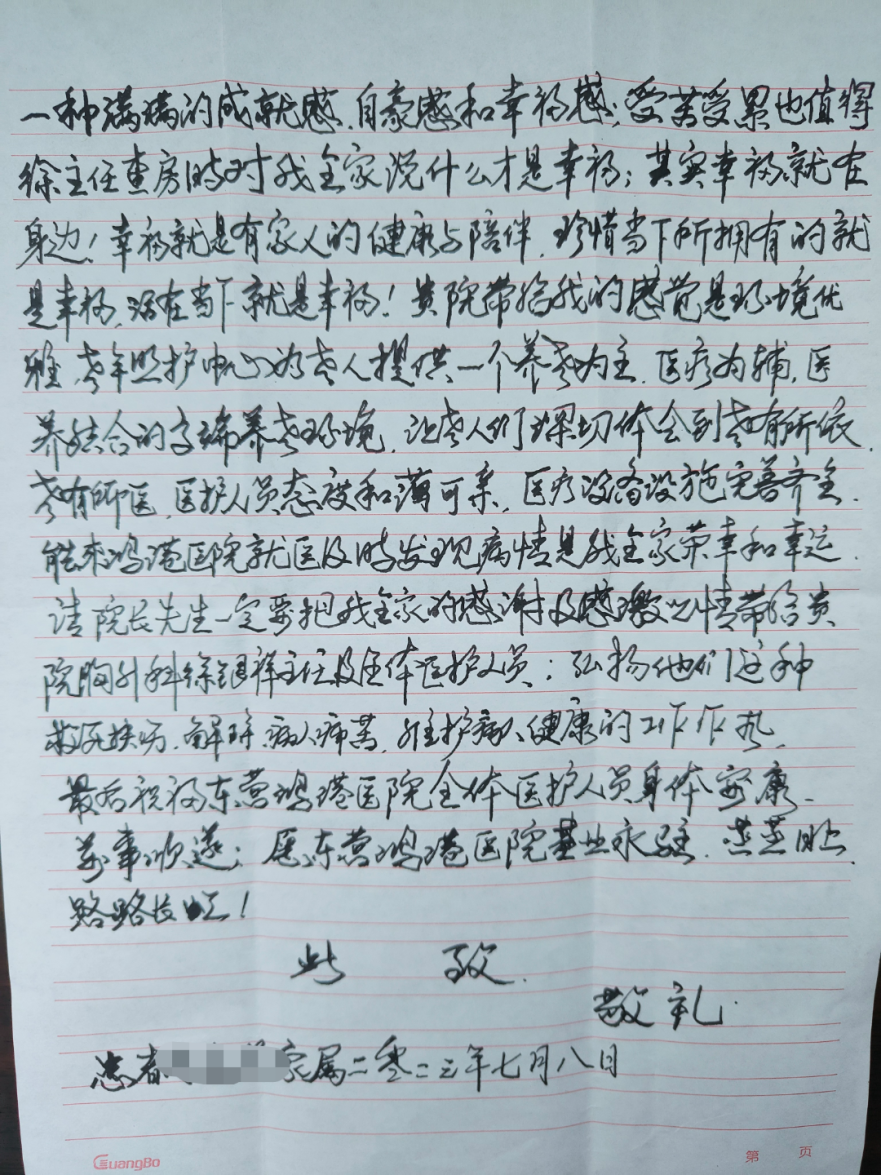 一种满满的成就感、自豪感和幸福感；受苦受累也值得
徐主任查房时对我全家说什么才是幸福；其实幸福就在
身边！幸福就是有家人的健康与陪伴，珍惜当下所拥有的就
是幸福，活在当下就是幸福！贵院带给我的感觉是环境优
雅，老年照护中心为老人提供一个养老为主，医疗为辅，医
养结合的高端养老环境，让老人们深切体会到老有所依，
老有所医，医护人员态度和蔼可亲，医疗设备设施完善齐全，
能来鸿港医院就医及时发现病情是我全家荣幸和幸运，
请院长先生一定要把我全家的感谢及感激之情带给贵
院胸外科徐银祥主任及全体医护人员；弘扬他们这种
救死扶伤，解除病人痛苦，维护病人健康的工作作风，
最后祝福东营鸿港医院全体医护人员身体安康、
万事顺遂；愿东营鸿港医院基业永驻，蒸蒸日上，
路路长虹！
此 致
敬礼
患者 家属二零二三年七月八日
GuangBo
第 页